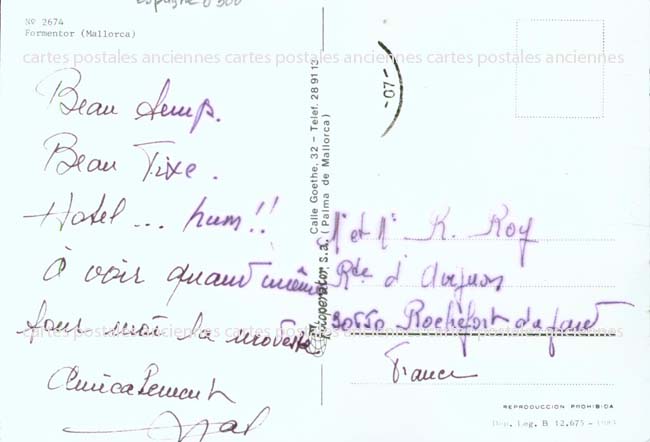 Espagne 0500
Nº 2674
Formentor (Mallorca)
cartes postales anciennes cartes postales anciennes cartes postales anciennes
Beau temps.
Beau Fixe.
Hotel ... hum!!
à voir quand même
Sans moi la
Amicalement
Calle Goethe, 32 - Telef. 28 91 13
(Palma de Mallorca)
s.a.
-07-
M et M R. Roy
Rte d'Avignon
30650 Rochefort du gard
France
cartes postales anciennes cartes postales anciennes cartes postales anciennes
REPRODUCCION PROHIBIDA
Dep. Leg. B 12.675 -